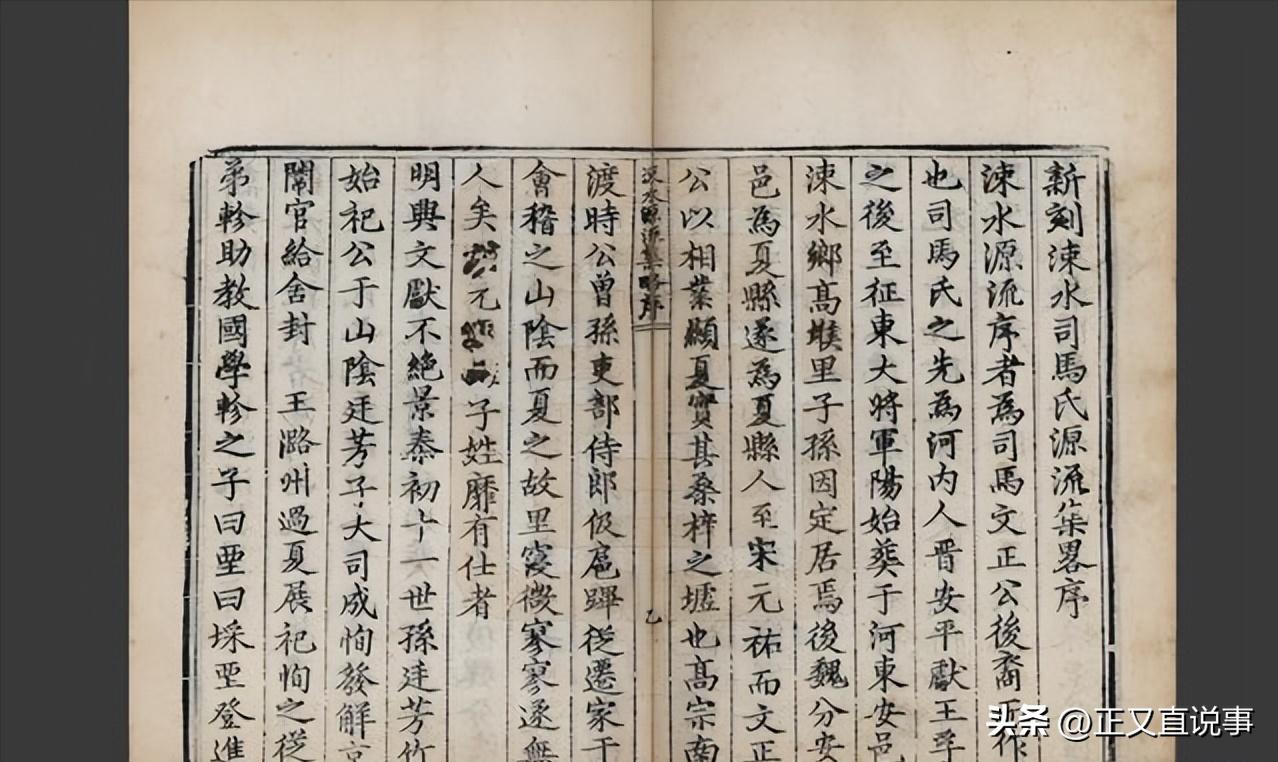 新刻涑水司馬氏源流集畧序
涑水源流序者為司馬文正公後裔而作
也司馬氏之先為河内人晋安平獻王孚
之後至征東大將軍陽始葬于河東安邑
涑水鄉高堠里子孫因定居焉後魏分安
邑為夏縣遂為夏縣人至宋元祐而文正
公以相業顯夏實其桑梓之墟也高宗南
涑水源流集略序
乙
渡時公曾孫吏部侍郎伋扈蹕從遷家于
會稽之山陰而夏之故里寖微寥寥遂無
人矣元子姓靡有仕者
明興文獻不絶景泰初十一世孫廷芳竹
始祀公于山陰廷芳子大司成恂發解京
闈官給舍封王潞州過夏展祀恂之從
弟軫助教國學軫之子曰堊曰埰堊登進
头条 @正又直说事